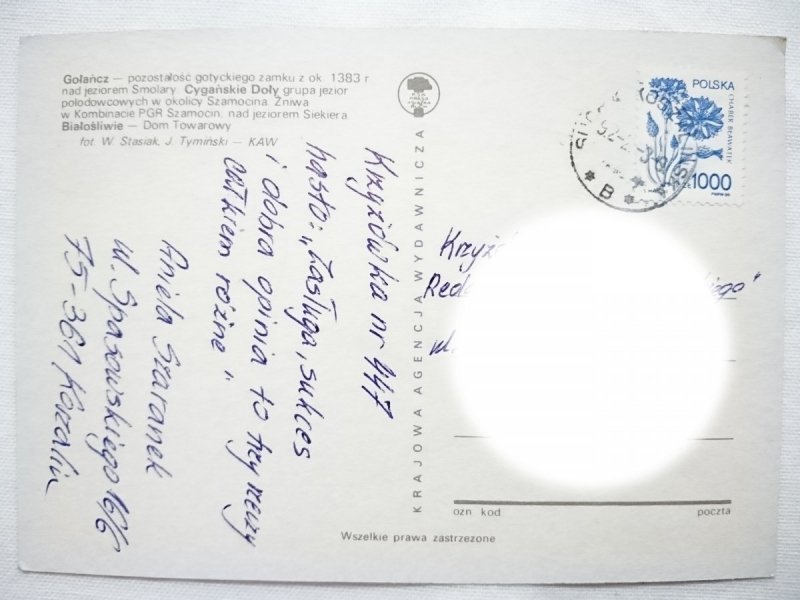 Gołańcz — pozostałość gotyckiego zamku z ok. 1383 r
nad jeziorem Smolary. Cygańskie Doły grupa jezior
polodowcowych w okolicy Szamocina. Żniwa
w Kombinacie PGR Szamocin, nad jeziorem Siekiera
Białośliwie — Dom Towarowy
fot. W. Stasiak, J. Tymiński — KAW
Krzyżówka nr 447
hasło: „Zasługa, sukces
i dobra opinia to trzy rzeczy
całkiem różne"
Aniela Szaranek
ul. Spasowskiego 16/6
75-361 Koszalin
KRAJOWA AGENCJA WYDAWNICZA
POLSKA
CHABER BŁAWATEK
zł 1000
B
Krzyż
Reda
kiego"
ul.
ozn kod
poczta
Wszelkie prawa zastrzezone